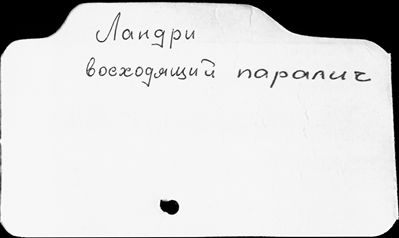 Ландри
восходящий паралич